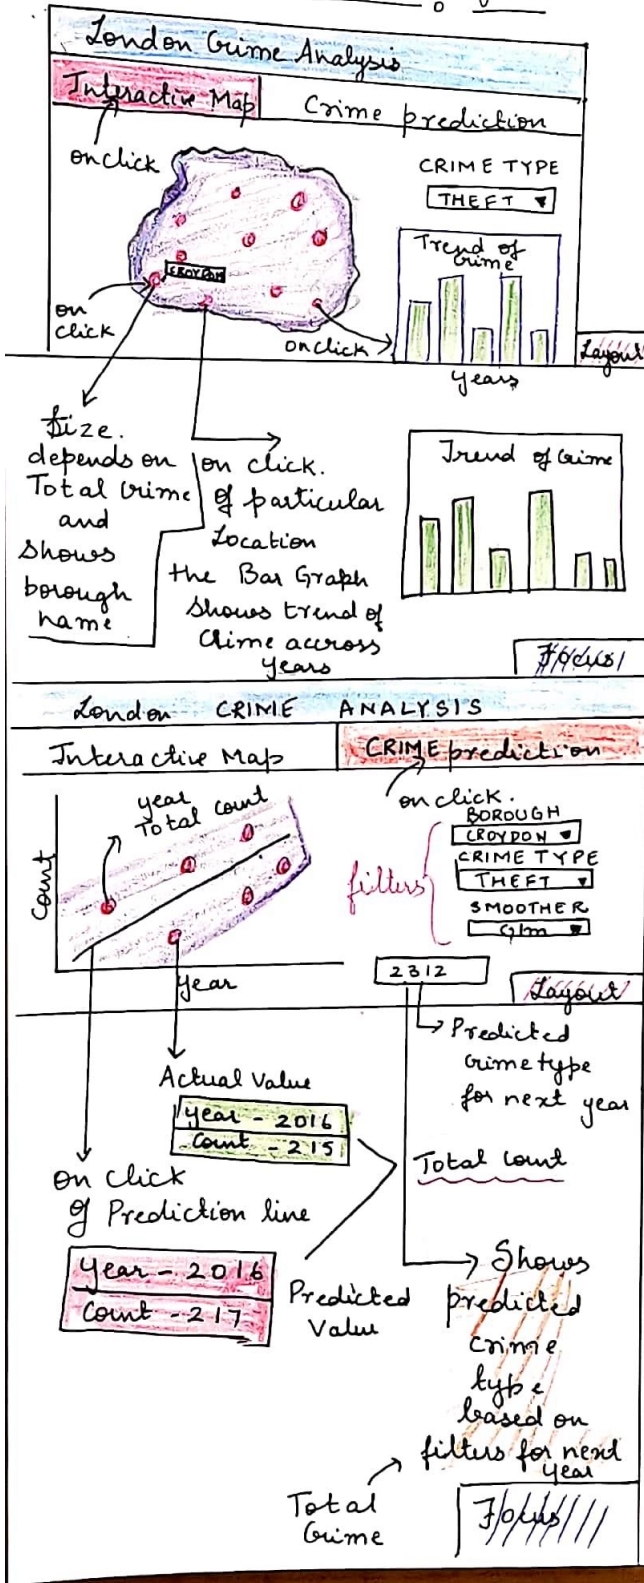 London Crime Analysis
Interactive Map
Crime prediction
on click
CRIME TYPE
THEFT
CROYDON
Trend of
Crime
on
click
on click
Years
Layout
Size.
depends on
Total Crime
and
Shows
borough
name
on click.
of particular
Location
the Bar Graph
Shows trend of
Crime accross
Years
Trend of Crime
Focus
London CRIME ANALYSIS
Interactive Map
CRIME prediction
on click.
year
Total count
Count
year
filters
BOROUGH
CROYDON
CRIME TYPE
THEFT
SMOOTHER
Glm
2312
Layout
Predicted
Crime type
for next year
Total count
Actual Value
year - 2016
Count - 215
on click
of Prediction line
Year - 2016
Count - 217
Predicted
Value
Shows
predicted
crime
type
based on
filters for next
year
Total
Crime
Focus